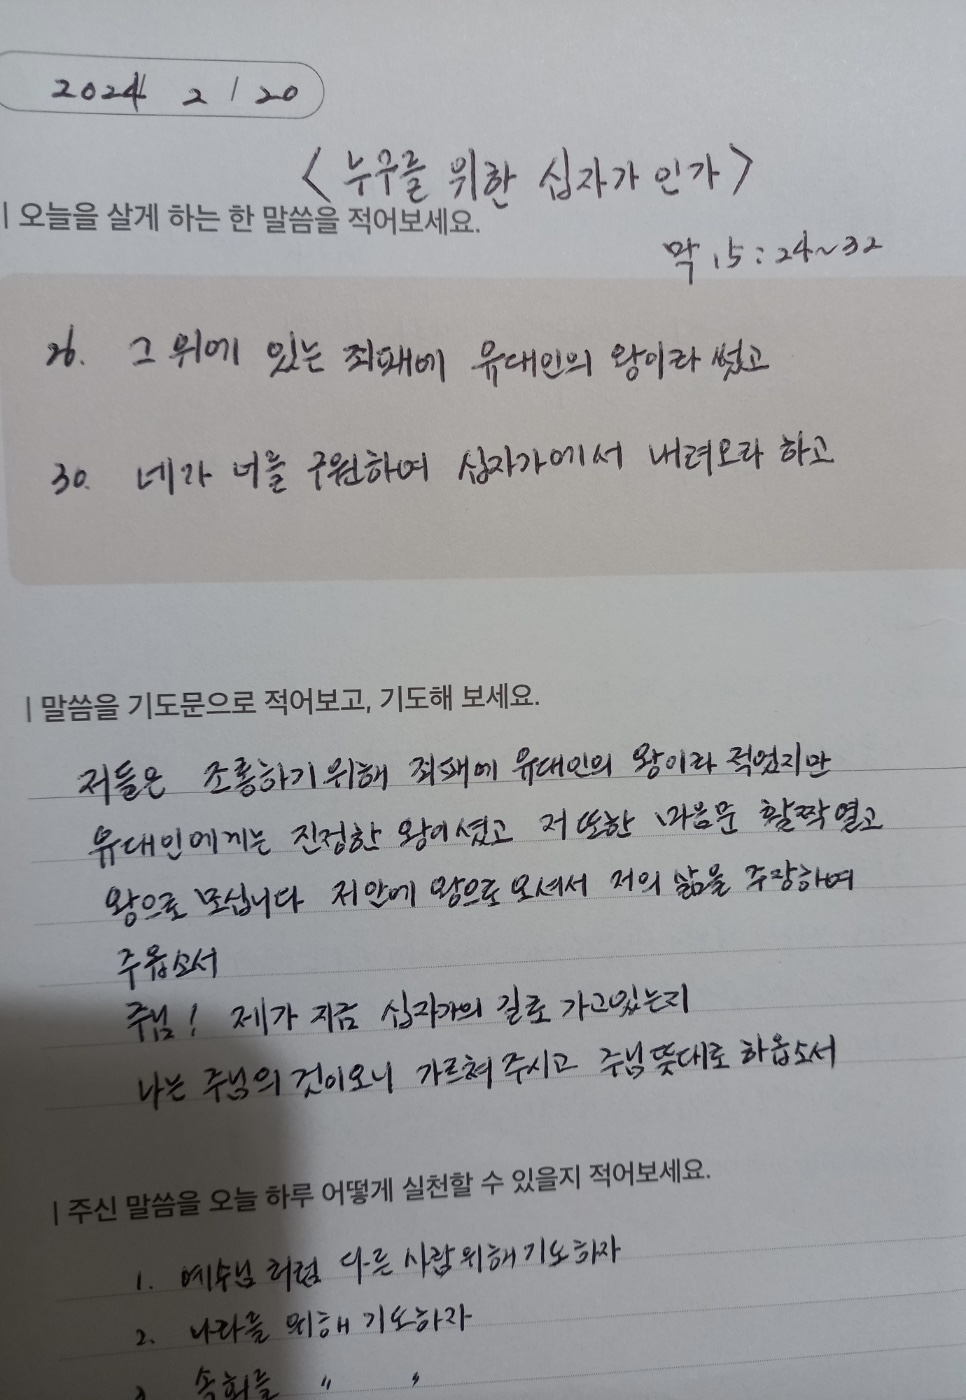 2024 2 / 20
<누구를 위한 십자가 인가>
| 오늘을 살게 하는 한 말씀을 적어보세요.
막 15:24~32
26. 그 위에 있는 죄패에 유대인의 왕이라 썼고
30. 네가 너를 구원하여 십자가에서 내려오라 하고
| 말씀을 기도문으로 적어보고, 기도해 보세요.
저들은 조롱하기 위해 죄패에 유대인의 왕이라 적었지만
유대인에게는 진정한 왕이셨고 저 또한 마음문 활짝 열고
왕으로 모십니다 저안에 왕으로 오셔서 저의 삶을 주장하여
주옵소서
주님! 제가 지금 십자가의 길로 가고있는지
나는 주님의 것이오니 가르쳐 주시고 주님뜻대로 하옵소서
| 주신 말씀을 오늘 하루 어떻게 실천할 수 있을지 적어보세요.
1. 예수님 처럼 다른 사람위해 기도하자
2. 나라를 위해 기도하자
3 속회를 〃 〃